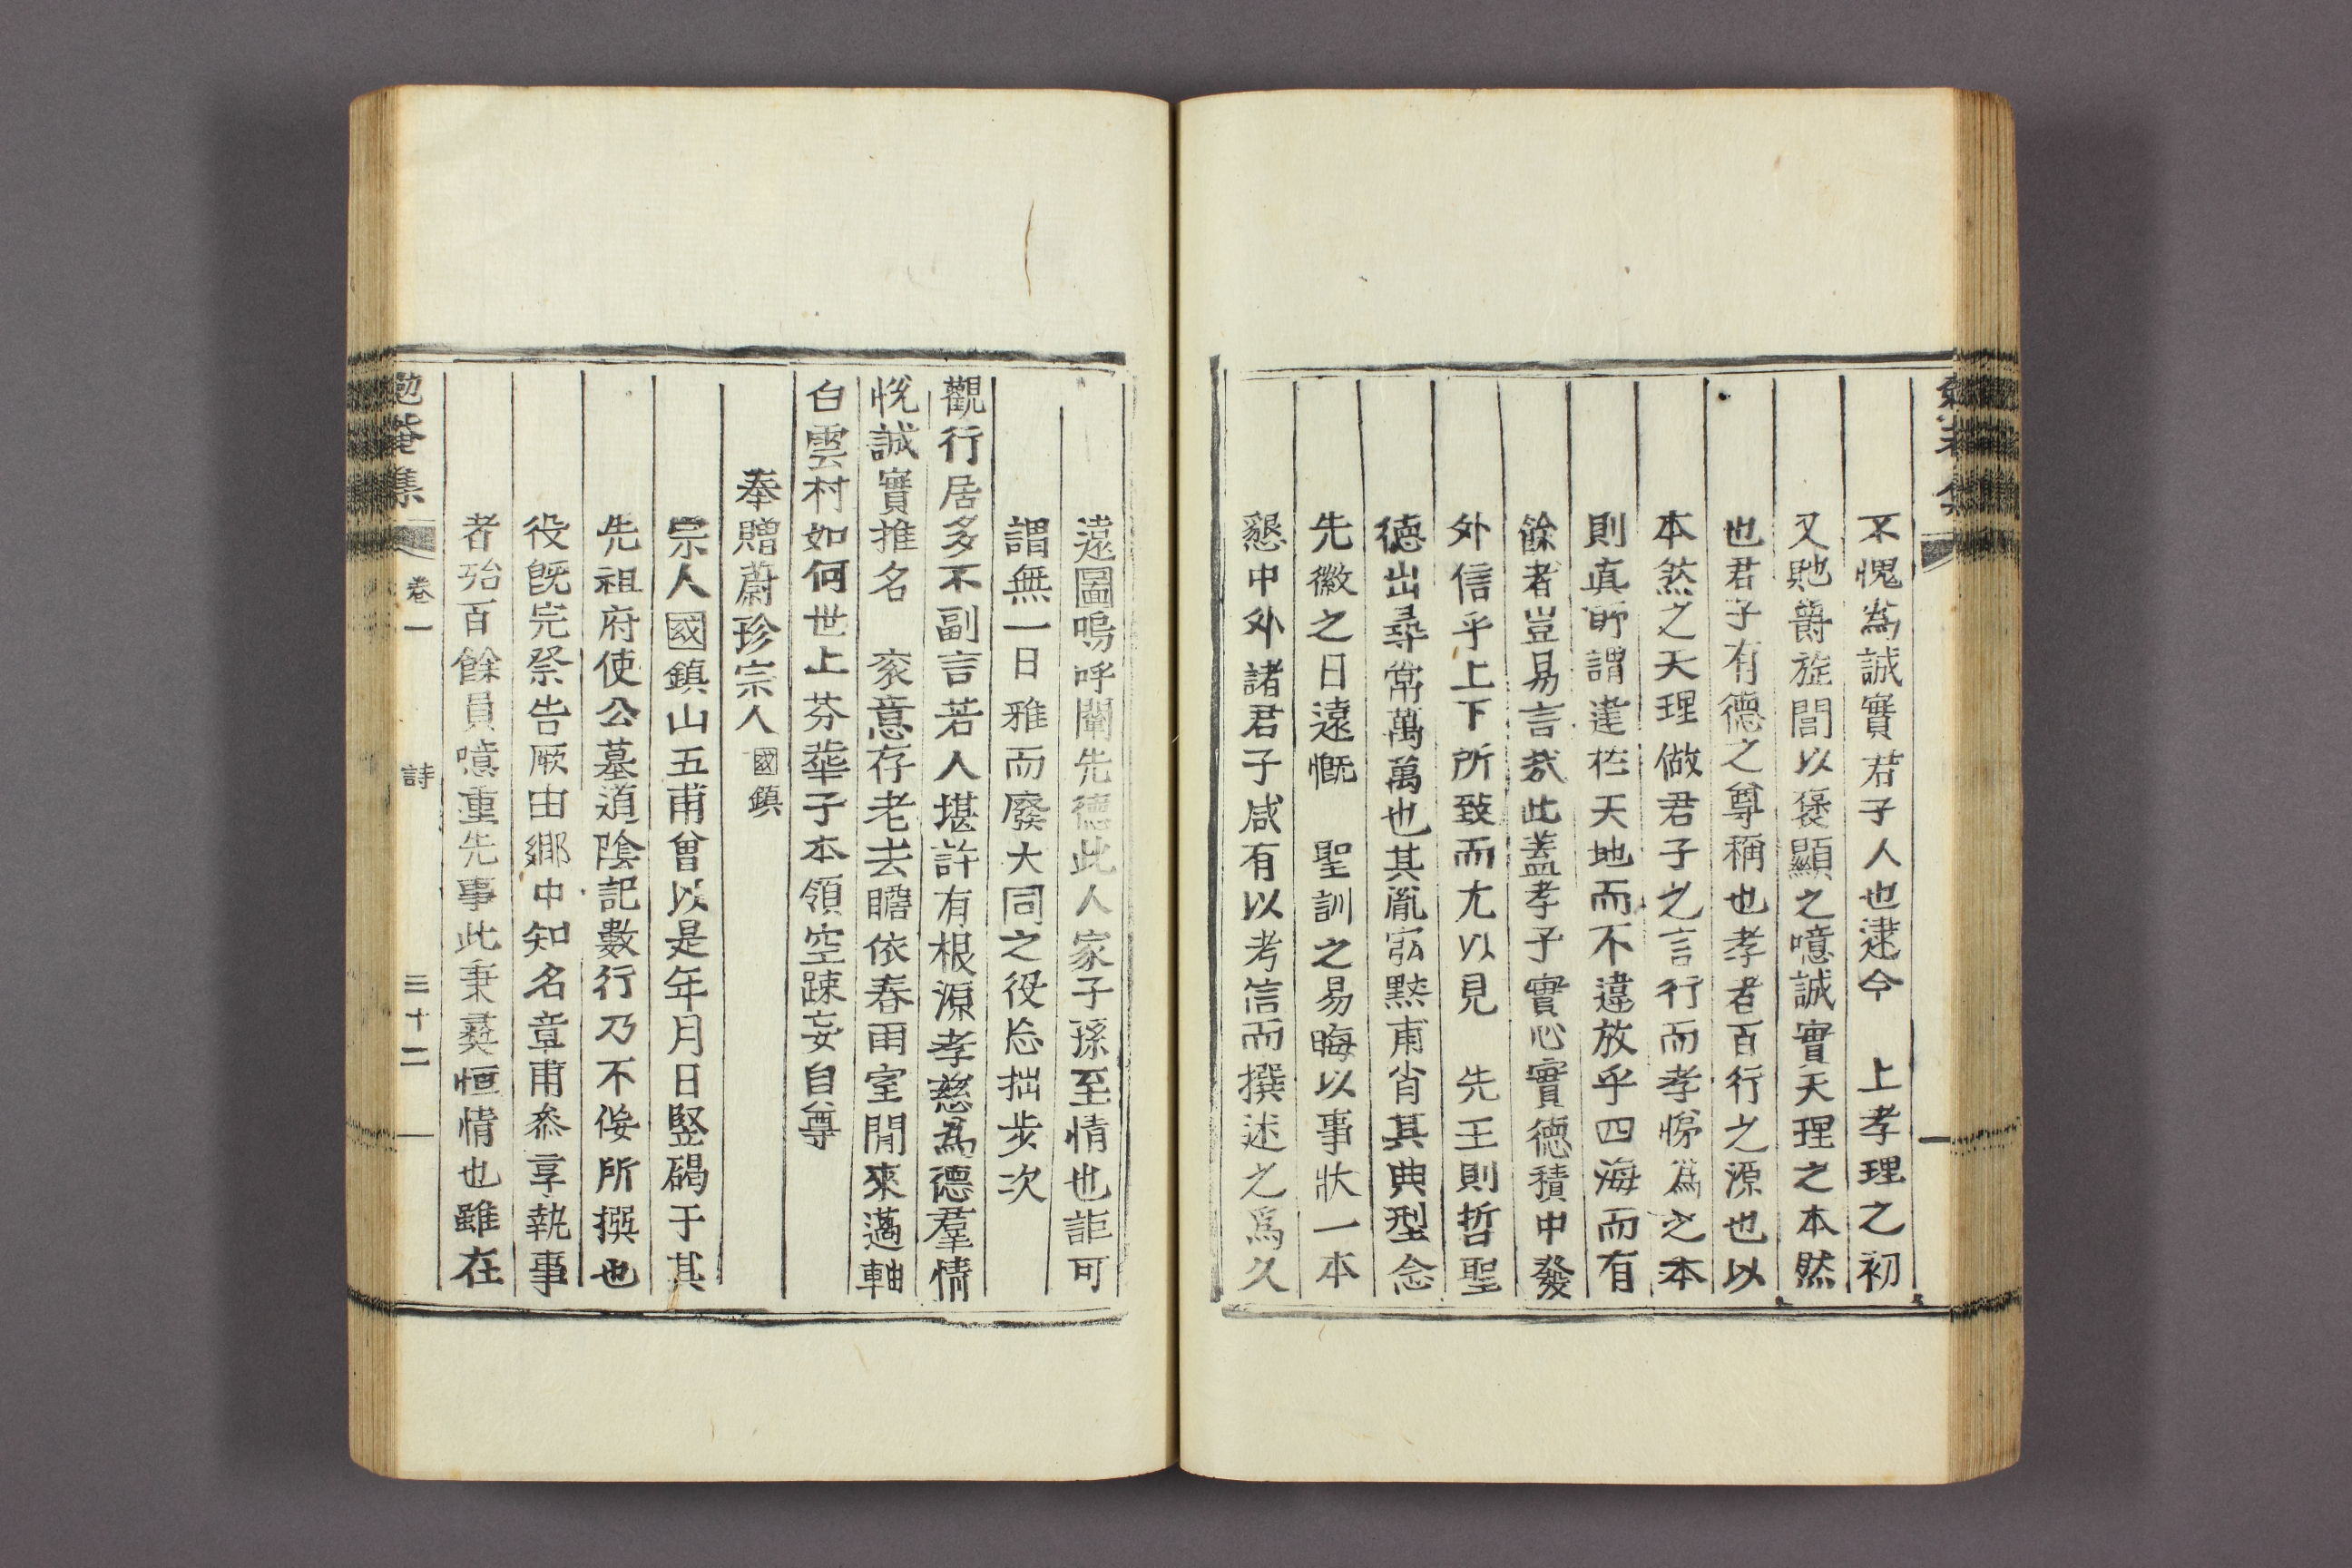 不愧爲誠實君子人也逮今 上孝理之初
又貤爵旋閭以褒顯之噫誠實天理之本然
也君子有德之尊稱也孝者百行之源也以
本然之天理做君子之言行而孝悌爲之本
則眞所謂達於天地而不違放乎四海而有
餘者豈易言哉此蓋孝子實心實德積中發
外信乎上下所致而尤以見 先王則哲聖
德出尋常萬萬也其胤弘黙甫肖其典型念
先徽之日遠慨 聖訓之易晦以事狀一本
懇中外諸君子咸有以考信而撰述之爲久
遠圖嗚呼闡先德此人家子孫至情也詎可
謂無一日雅而廢大同之役忘拙步次
觀行居多不副言若人堪許有根源孝慈爲德羣情
悅誠實推名 衮意存老去瞻依春雨室閒來邁軸
白雲村如何世上芬華子本領空踈妄自尊
奉贈蔚珍宗人國鎭
宗人國鎭山五甫曾以是年月日竪碣于其
先祖府使公墓道陰記數行乃不佞所撰也
役旣完祭告厥由鄕中知名章甫叅享執事
者殆百餘員噫重先事此秉彛恒情也雖在
勉菴集 卷一 詩 三十二